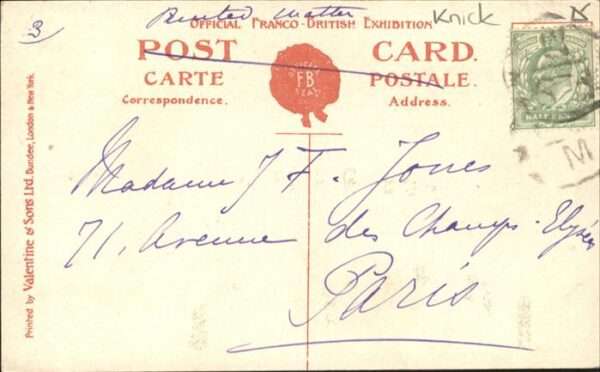 Printed Matter
Knick
3
OFFICIAL FRANCO-BRITISH EXHIBITION
POST CARD.
CARTE POSTALE.
Correspondence. Address.
FB
HALF PENNY
M
Madame J F. Jones
71, Avenue des Champs-Elysées
Paris
Printed by Valentine & Sons Ltd. Dundee, London & New York.